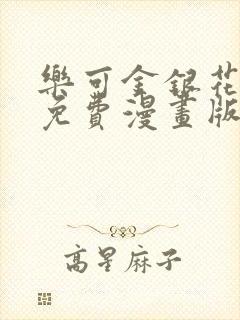 樂可金銀花
免費漫畫版
高星麻子